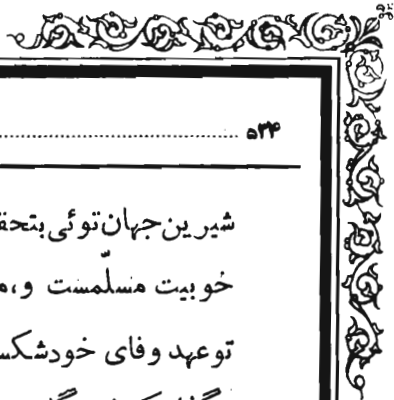 ۵۳۴
شیرین جهان توئی بتحقـ
خوبیت مسلّمست و، مـ
تو عهد وفای خود شکسـ